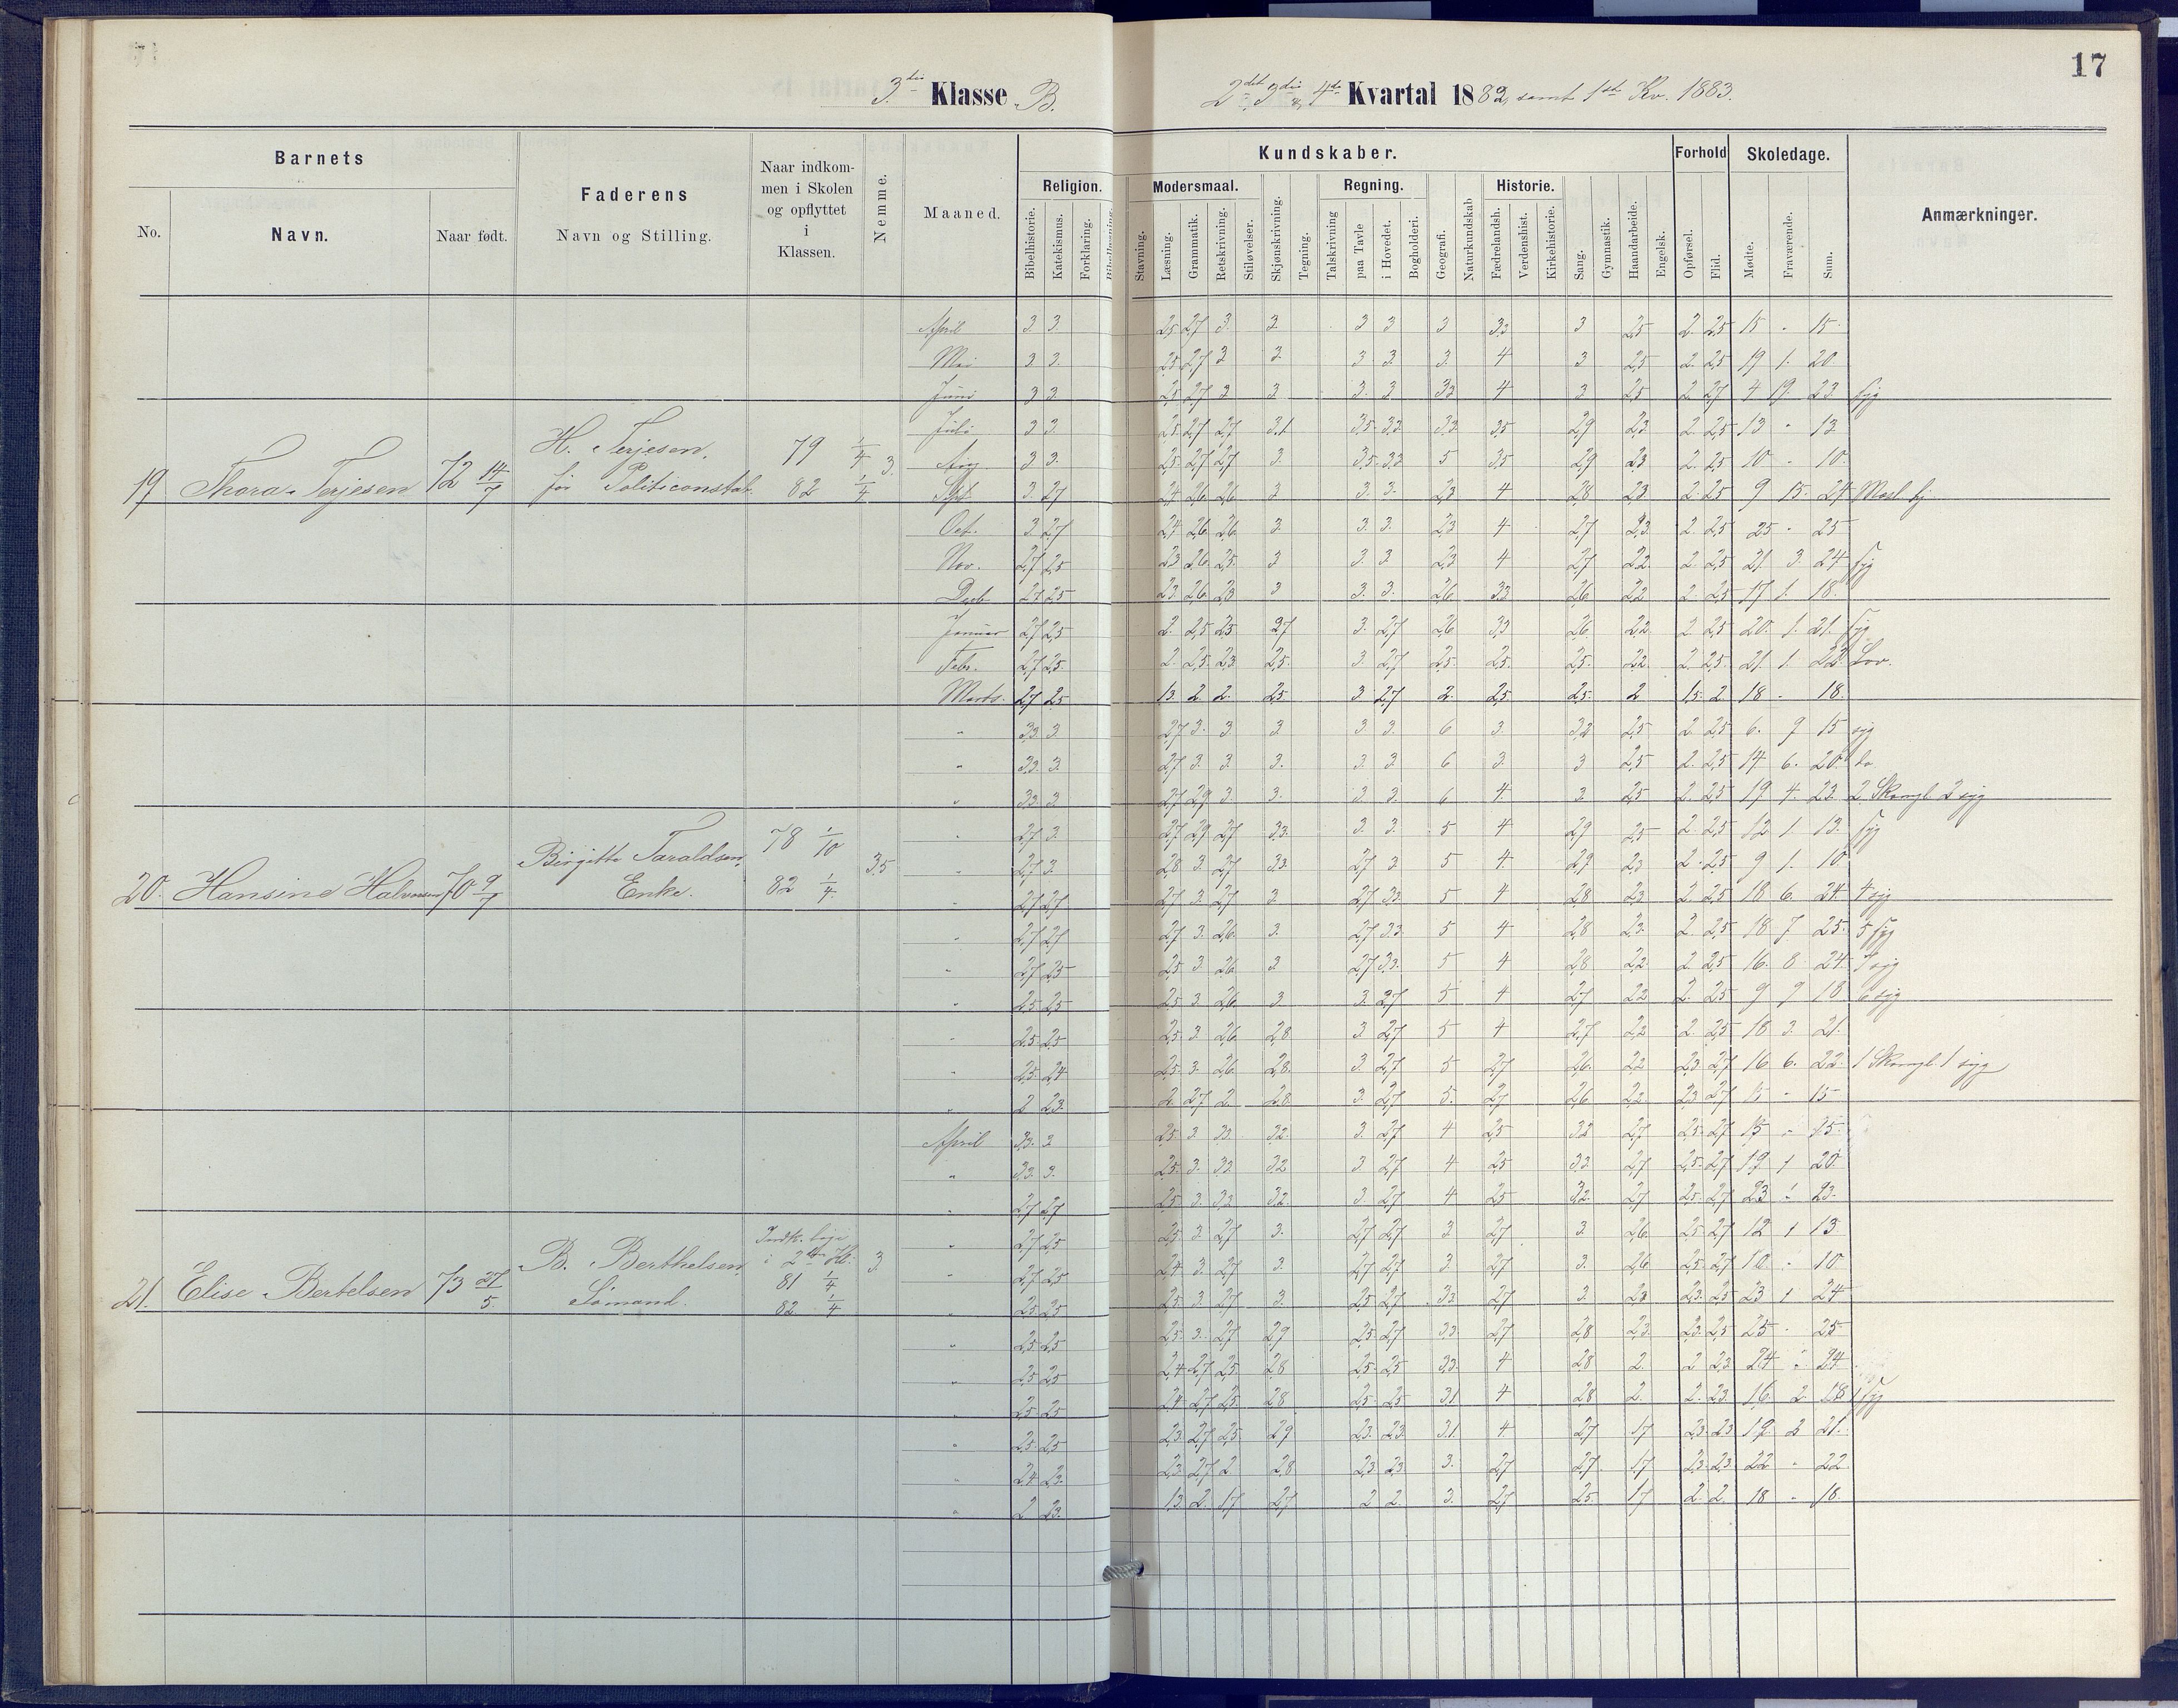 17
3die Klasse B.
2det 3die & 4de Kvartal 1882, samt 1ste Kv. 1883.
Barnets
No.
Navn.
Naar født.
Faderens
Navn og Stilling.
Naar indkom-
men i Skolen
og opflyttet
i
Klassen.
Nemme.
Maaned.
Kundskaber.
Religion.
Bibelhistorie.
Katekismus.
Forklaring.
Modersmaal.
Stavning.
Læsning.
Grammatik.
Retskrivning.
Stiløvelser.
Skjønskrivning.
Tegning.
Regning.
Talskrivning
paa Tavle
i Hovedet.
Bogholderi.
Geografi.
Naturkundskab
Historie.
Fædrelandsh.
Verdenshist.
Kirkehistorie.
Sang.
Gymnastik.
Haandarbeide.
Engelsk.
Forhold
Opførsel.
Flid.
Skoledage.
Møde.
Fraværende.
Sum.
Anmærkninger.
19 Thora Terjesen 72 14/7
H. Terjesen.
før Politiconstab.
79 1/4
82 1/4
3.
April 3. 3. 2,5 2,7 3. 3 3 3 3 3,3 3 2,5 2. 2,5 15 " 15
Mai 3 3. 2,5 2,7 3 3. 3 3. 3. 4 3 2,5 2. 2,5 19 1. 20
Juni 3 3 2,5 2,7 3 3 3. 3 3,3 4 3 2,5 2 2,7 4 19. 23 syg
Juli 3 3. 2,5 2,7 2,7 3,1 3,5 3,3 3,3 3,5 2,9 2,3 2. 2,5 13 " 13
Aug. 3 3. 2,5 2,7 2,7 3. 3,5 3,3 5 3,5 2,9 2,3 2. 2,5 10 " 10.
Sept. 3. 2,7 2,4 2,6 2,6 3 3. 3. 2,3 4 2,8 2,3 2. 2,5 9 15. 24
Oct. 3. 2,7 2,4 2,6 2,6 3. 3. 3. 2,3 4 2,7 2,3 2. 2,5 25 " 25
Nov. 2,7 2,5 2,3 2,6 2,5 3 3. 3. 2,3 4 2,7 2,2 2. 2,5 21 3. 24 syg
Decb 2,7 2,5 2,3 2,6 2,3 3 3. 3. 2,6 3,3 2,6 2,2 2. 2,5 17 1. 18.
Januar 2,7 2,5 2. 2,5 2,5 2,7 3. 2,7 2,6 3,3 2,6 2,2 2 2,5 20. 1. 21. syg
Febr. 2,7 2,5 2. 2,5 2,3 2,5. 3. 2,7 2,5. 2,5. 2,5. 2,2 2. 2,5. 21. 1. 22 Lov.
Marts. 2,7 2,5 1,3 2 2. 2,5. 3 2,7 2. 2,5 2,5. 2 1,5 2 18 " 18.
20. Hansine Halvorsen 70 9/7
Birgitte Taraldsen,
Enke.
78 1/10
82 1/4.
3,5
" 3,3. 3. 2,7 3. 3 3 3 3. 6 3. 3,2 2,5 2. 2,5 6. 9 15 syg
" 3,3. 3. 2,7 3. 3. 3. 3 3 6 3. 3 2,5 2. 2,5 14 6. 20 do
" 3,3. 3 2,7 2,9 3. 3. 3 3. 6 4. 3. 2,5 2. 2,5 19 4. 23. 2 Skomgl. 2 syg
" 2,7 3. 2,7 2,9 2,7 3,3. 3. 3. 5 4 2,9 2,5 2. 2,5 12 1. 13. syg
" 2,7 3. 2,8 3. 2,7 3,3. 2,7 3 5 4. 2,9 2,3 2. 2,5. 9 1. 10
" 2,7 2,7 2,7 3. 2,7 3. 2,7 3,3. 5 4 2,8 2,3 2. 2,5 18 6. 24. 4 syg
" 2,7 2,7 2,7 3. 2,6. 3. 2,7 3,3. 5 4 2,8 2,3. 2. 2,5 18 7 25. 5 syg
" 2,7 2,5 2,5 3. 2,6 3 2,7 3,3. 5 4 2,8 2,2 2. 2,5 16. 8 24.
" 2,5 2,5 2,5 3. 2,6. 3 3. 2,7 5 4 2,7 2,2 2. 2,5 9 9 18. 6 syg
" 2,5 2,5 2,5. 3. 2,6. 2,8 3. 2,7 5 4 2,7 2,2 2. 2,5 18 3. 21.
" 2,5. 2,4 2,5. 3. 2,6. 2,8. 3. 2,7 5 2,7 2,6. 2,2 2,3. 2,7 16 6. 22. 1 Skomgl. 1 syg
" 2 2,3. 2. 2,7 2. 2,8. 3. 2,7 5. 2,7 2,6 2,2 2,3 2,7 15 " 15
21. Elise Bertelsen 73 27/5.
B. Berthelsen,
Sømand.
i 2den Kl.
81 1/4,
82 1/4
3.
April 3,3. 3 2,5. 3. 3,3. 3,2. 3. 2,7 4 2,5 3,2 2,7 2,5 2,7 15. " 15.
" 3,3. 3. 2,5. 3. 3,3. 3,2 3 2,7 4 2,5 3,3. 2,7 2,5. 2,7 19 1 20.
" 2,7 2,7 2,5 3. 3,3. 3,2. 3. 2,7 4 2,5 3,2. 2,7 2,5. 2,7 23 " 23.
" 2,7 2,5 2,5 3. 2,7 3. 2,7 2,7 3 2,7 3. 2,6. 2,5. 2,7 12 1 13
" 2,7 2,5 2,4 3. 2,7 3. 2,7 2,7 3. 2,7 3. 2,6 2,5. 2,7 10. " 10.
" 2,5 2,5 2,5 3. 2,7 3. 2,5 2,7 3,3. 2,7 3. 2,3 2,3. 2,5 23 1 24
" 2,5 2,5 2,5 3. 2,7 2,9 2,5. 2,7 3,3. 2,7 2,8 2,3. 2,3. 2,5 25 " 25
" 2,5 2,5 2,4 2,7 2,5. 2,8 2,5. 2,5 3,3. 4 2,8 2. 2 2,3. 24 " 24.
" 2,5 2,5 2,4 2,7 2,5. 2,8 2,5. 2,5 3,1 4 2,8 2. 2. 2,3. 16. 2 18
" 2,5 2,5 2,3 2,7 2,5. 2,9 2,3. 2,3. 3,1 4. 2,7 1,7 2,3. 2,3 19. 2 21.
" 2,4 2,3. 2,3. 2,7 2. 2,8 2,3 2,3 3. 2,7 2,7. 1,7 2,3. 2,3. 22 " 22
" 2 2,3. 1,3. 2. 1,7 2,7 2 2. 3. 2,7 2,5. 1,7 2. 2. 18 " 18.